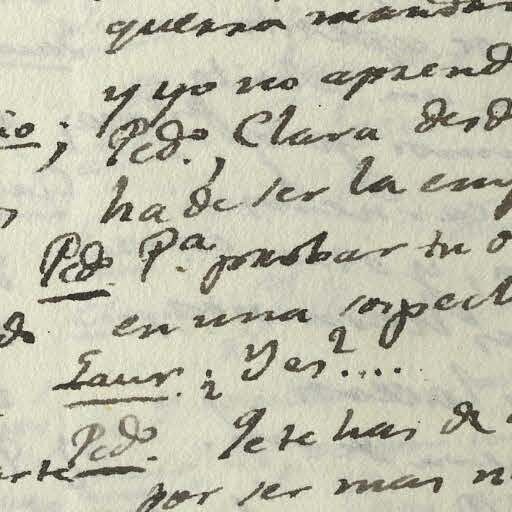 quiera mandar
y yo no aprend
io; Pedº, Clara desd
ha de ser la emp
Pedº. Pª. probar tu o
do en una sospech
Laur. ¿Yes?....
Pedº. Qe te has de
arte por ser mas n